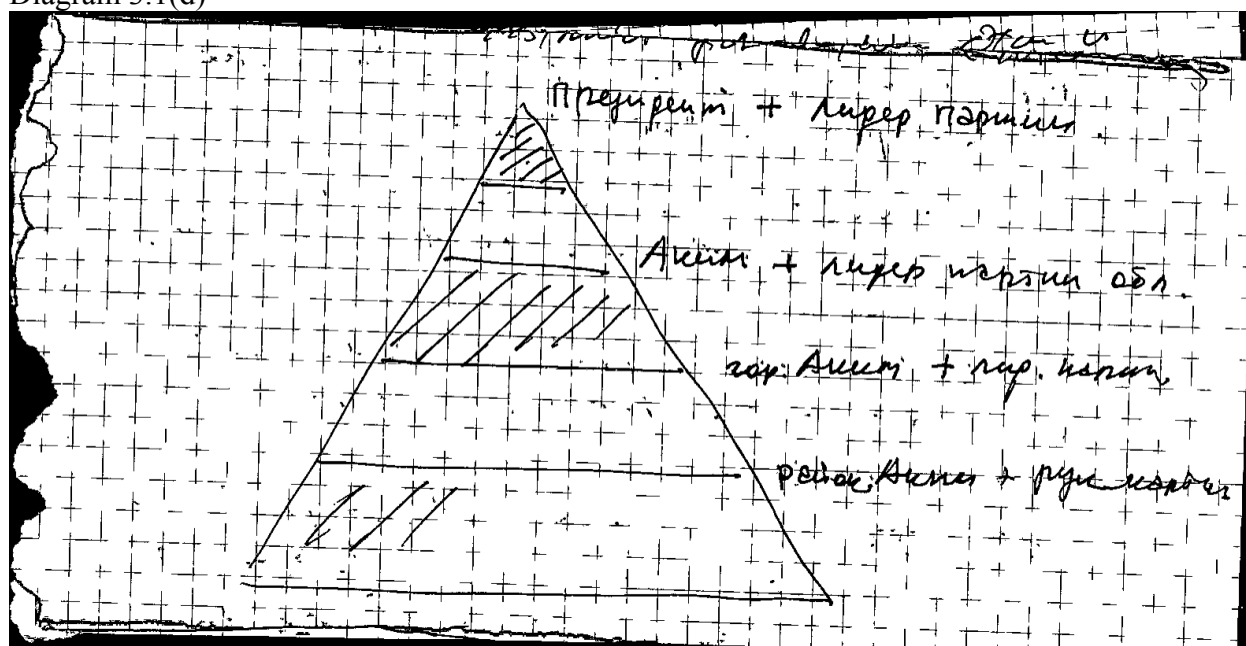 Diagram 3.1(d)
Президент + лидер партии
Аким + лидер партии обл.
гор. Аким + лид. партии
район. Аким + рук партии